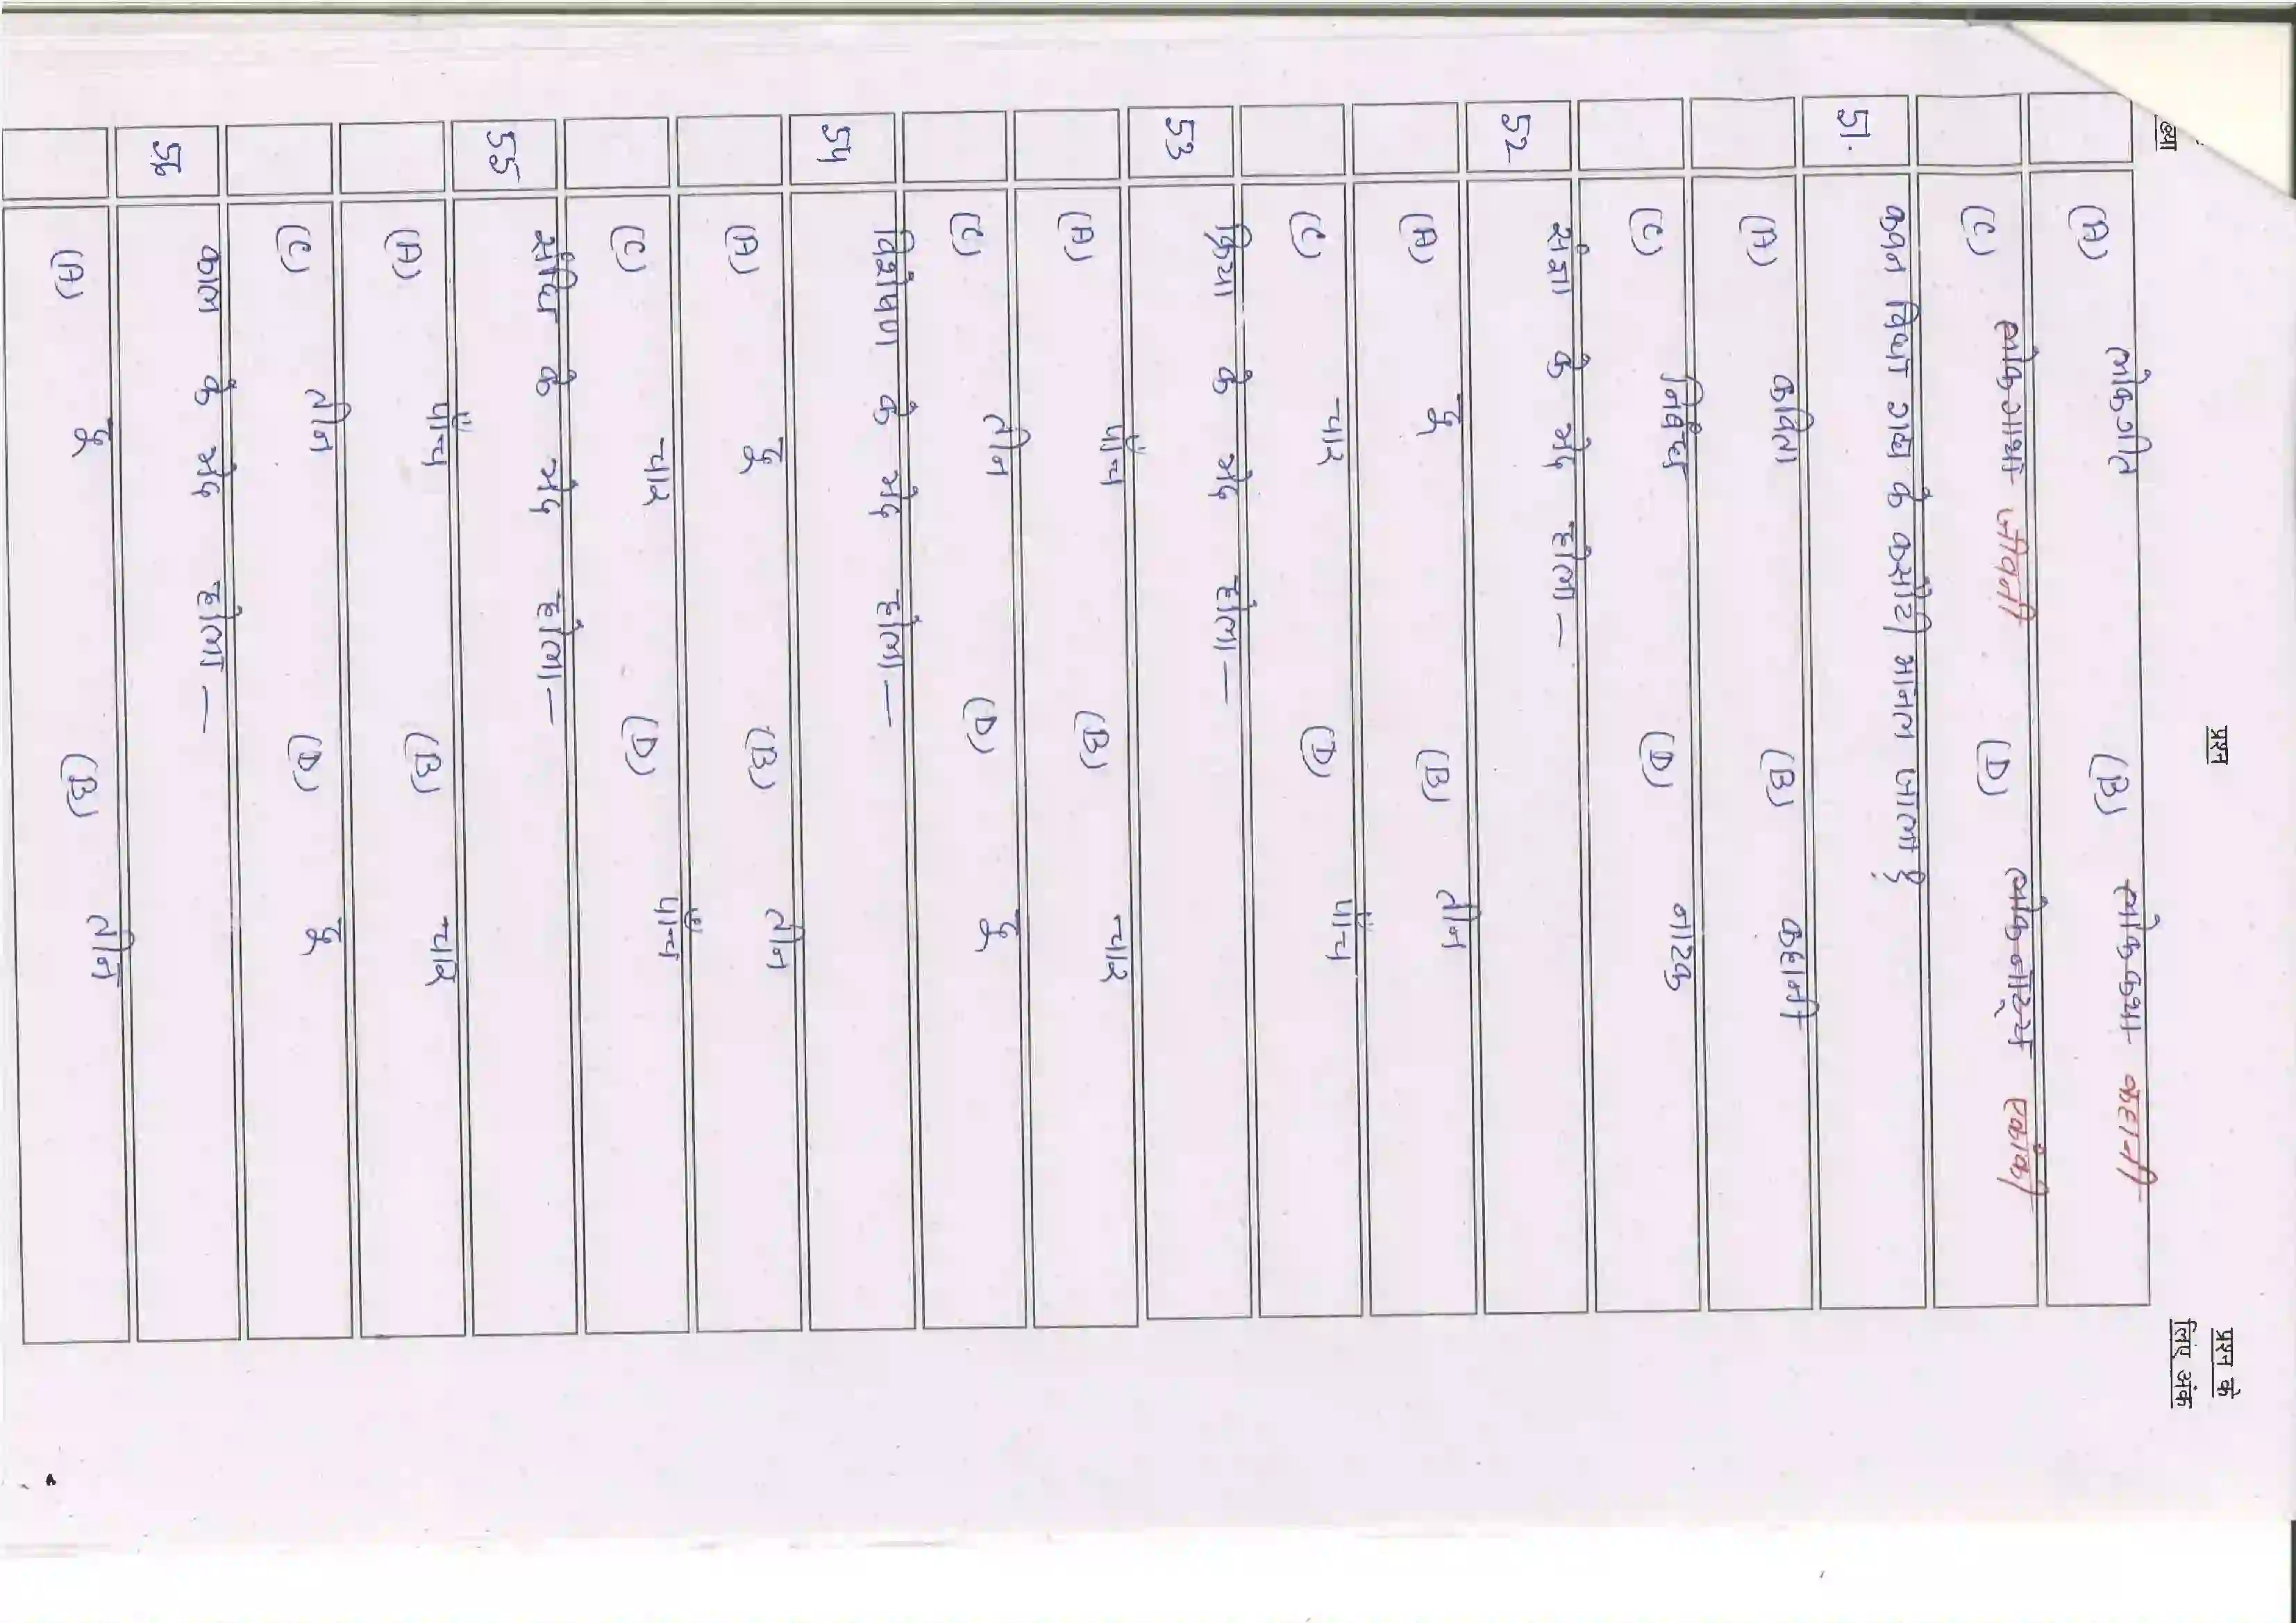 प्रश्न
प्रश्न के
लिए अंक
ख्या
(A) लोकगीत (B) लोककथा कहानी
(C) लोकगाथा जीवनी (D) लोकनाट्य एकांकी
51. कवन विधा गद्य के कसौटी मानल जाला?
(A) कविता (B) कहानी
(C) निबंध (D) नाटक
52 संज्ञा के भेद होला —
(A) दू (B) तीन
(C) चार (D) पाँच
53 क्रिया के भेद होला —
(A) पाँच (B) चार
(C) तीन (D) दू
54 विशेषण के भेद होला —
(A) दू (B) तीन
(C) चार (D) पाँच
55 संधि के भेद होला —
(A) पाँच (B) चार
(C) तीन (D) दू
56 काल के भेद होला —
(A) दू (B) तीन